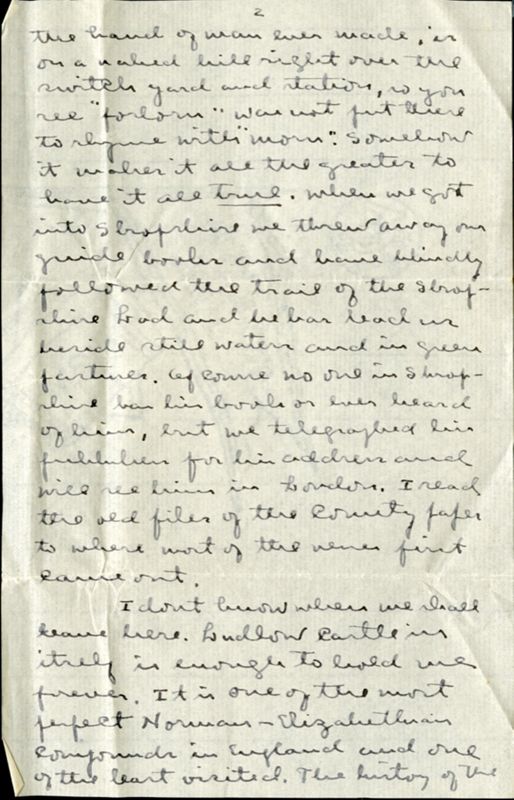 2
the hand of man ever made, is
on a naked hill right over the
switch yard and station, so you
see "forlorn" was not put there
to rhyme with "morn". Somehow
it makes it all the greater to
have it all true. When we got
into Shropshire we threw away our
guide books and have blindly
followed the trail of the Shrop-
shire Lad and he has lead us
beside still waters and in green
pastures. Of course no one in Shrop-
shire has his book or ever heard
of him, but we telegraphed his
publisher for his address and
will see him in London. I read
the old files of the County paper
to where most of the verses first
came out.
I dont know when we shall
leave here. Ludlow Castle in
itself is enough to hold me
forever. It is one of the most
perfect Norman-Elizabethan
compounds in England and one
of the least visited. The history of the